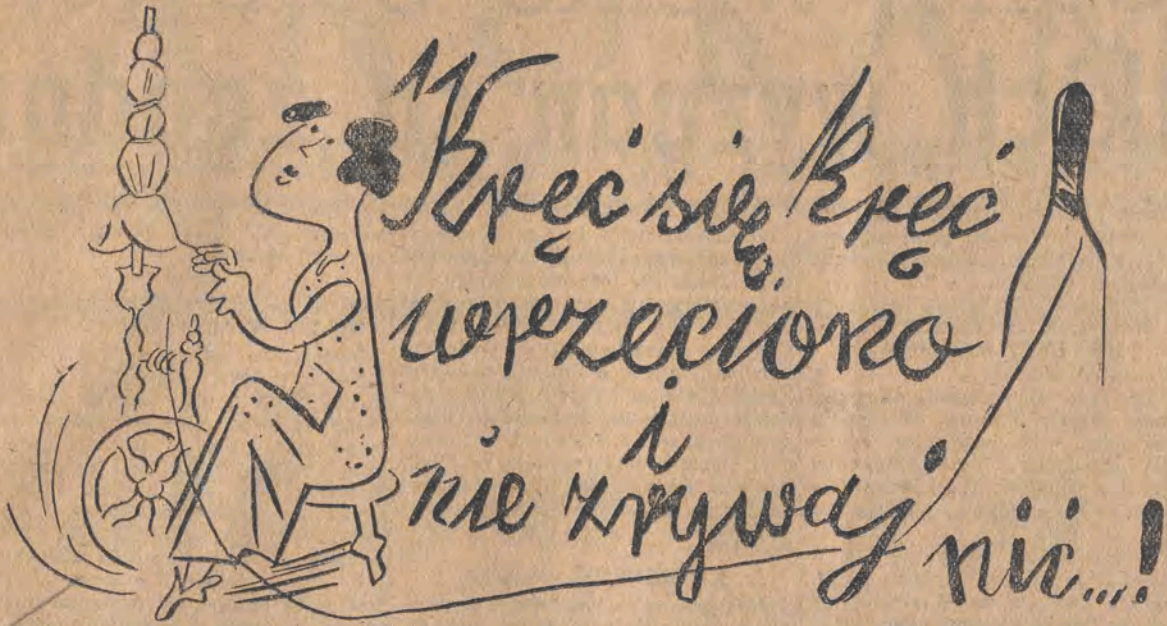 Kręć się kręć
wrzeciono
i
nie zrywaj
nić...!